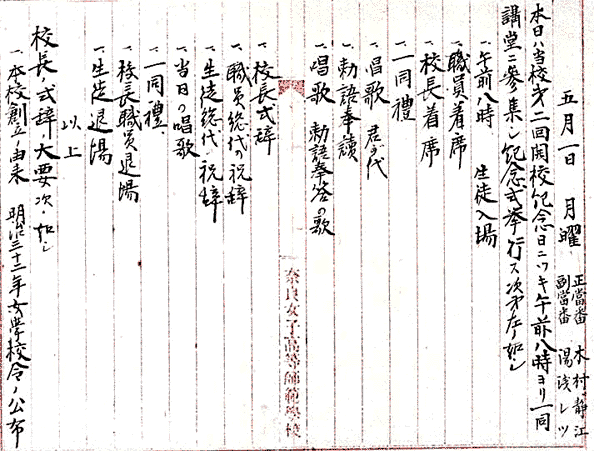 五月一日 月曜 正當番 木村静江
副當番 湯浅レツ
本日ハ当校第二回開校紀念日ニツキ午前八時ヨリ一同
講堂ニ參集シ紀念式挙行ス次第左如シ
一、午前八時 生徒入場
一、職員着席
一、校長着席
一、一同禮
一、唱歌 君が代
一、勅語奉讀
一、唱歌 勅語奉答の歌
奈良女子高等師範學校
一、校長式辞
一、職員総代の祝辞
一、生徒総代ノ祝辞
一、当日の唱歌
一、一同禮
一、校長職員退場
一、生徒退場
以上
校長ノ式辞大要次ノ如シ
一、本校創立ノ由来 明治三十三年女學校令ノ公布